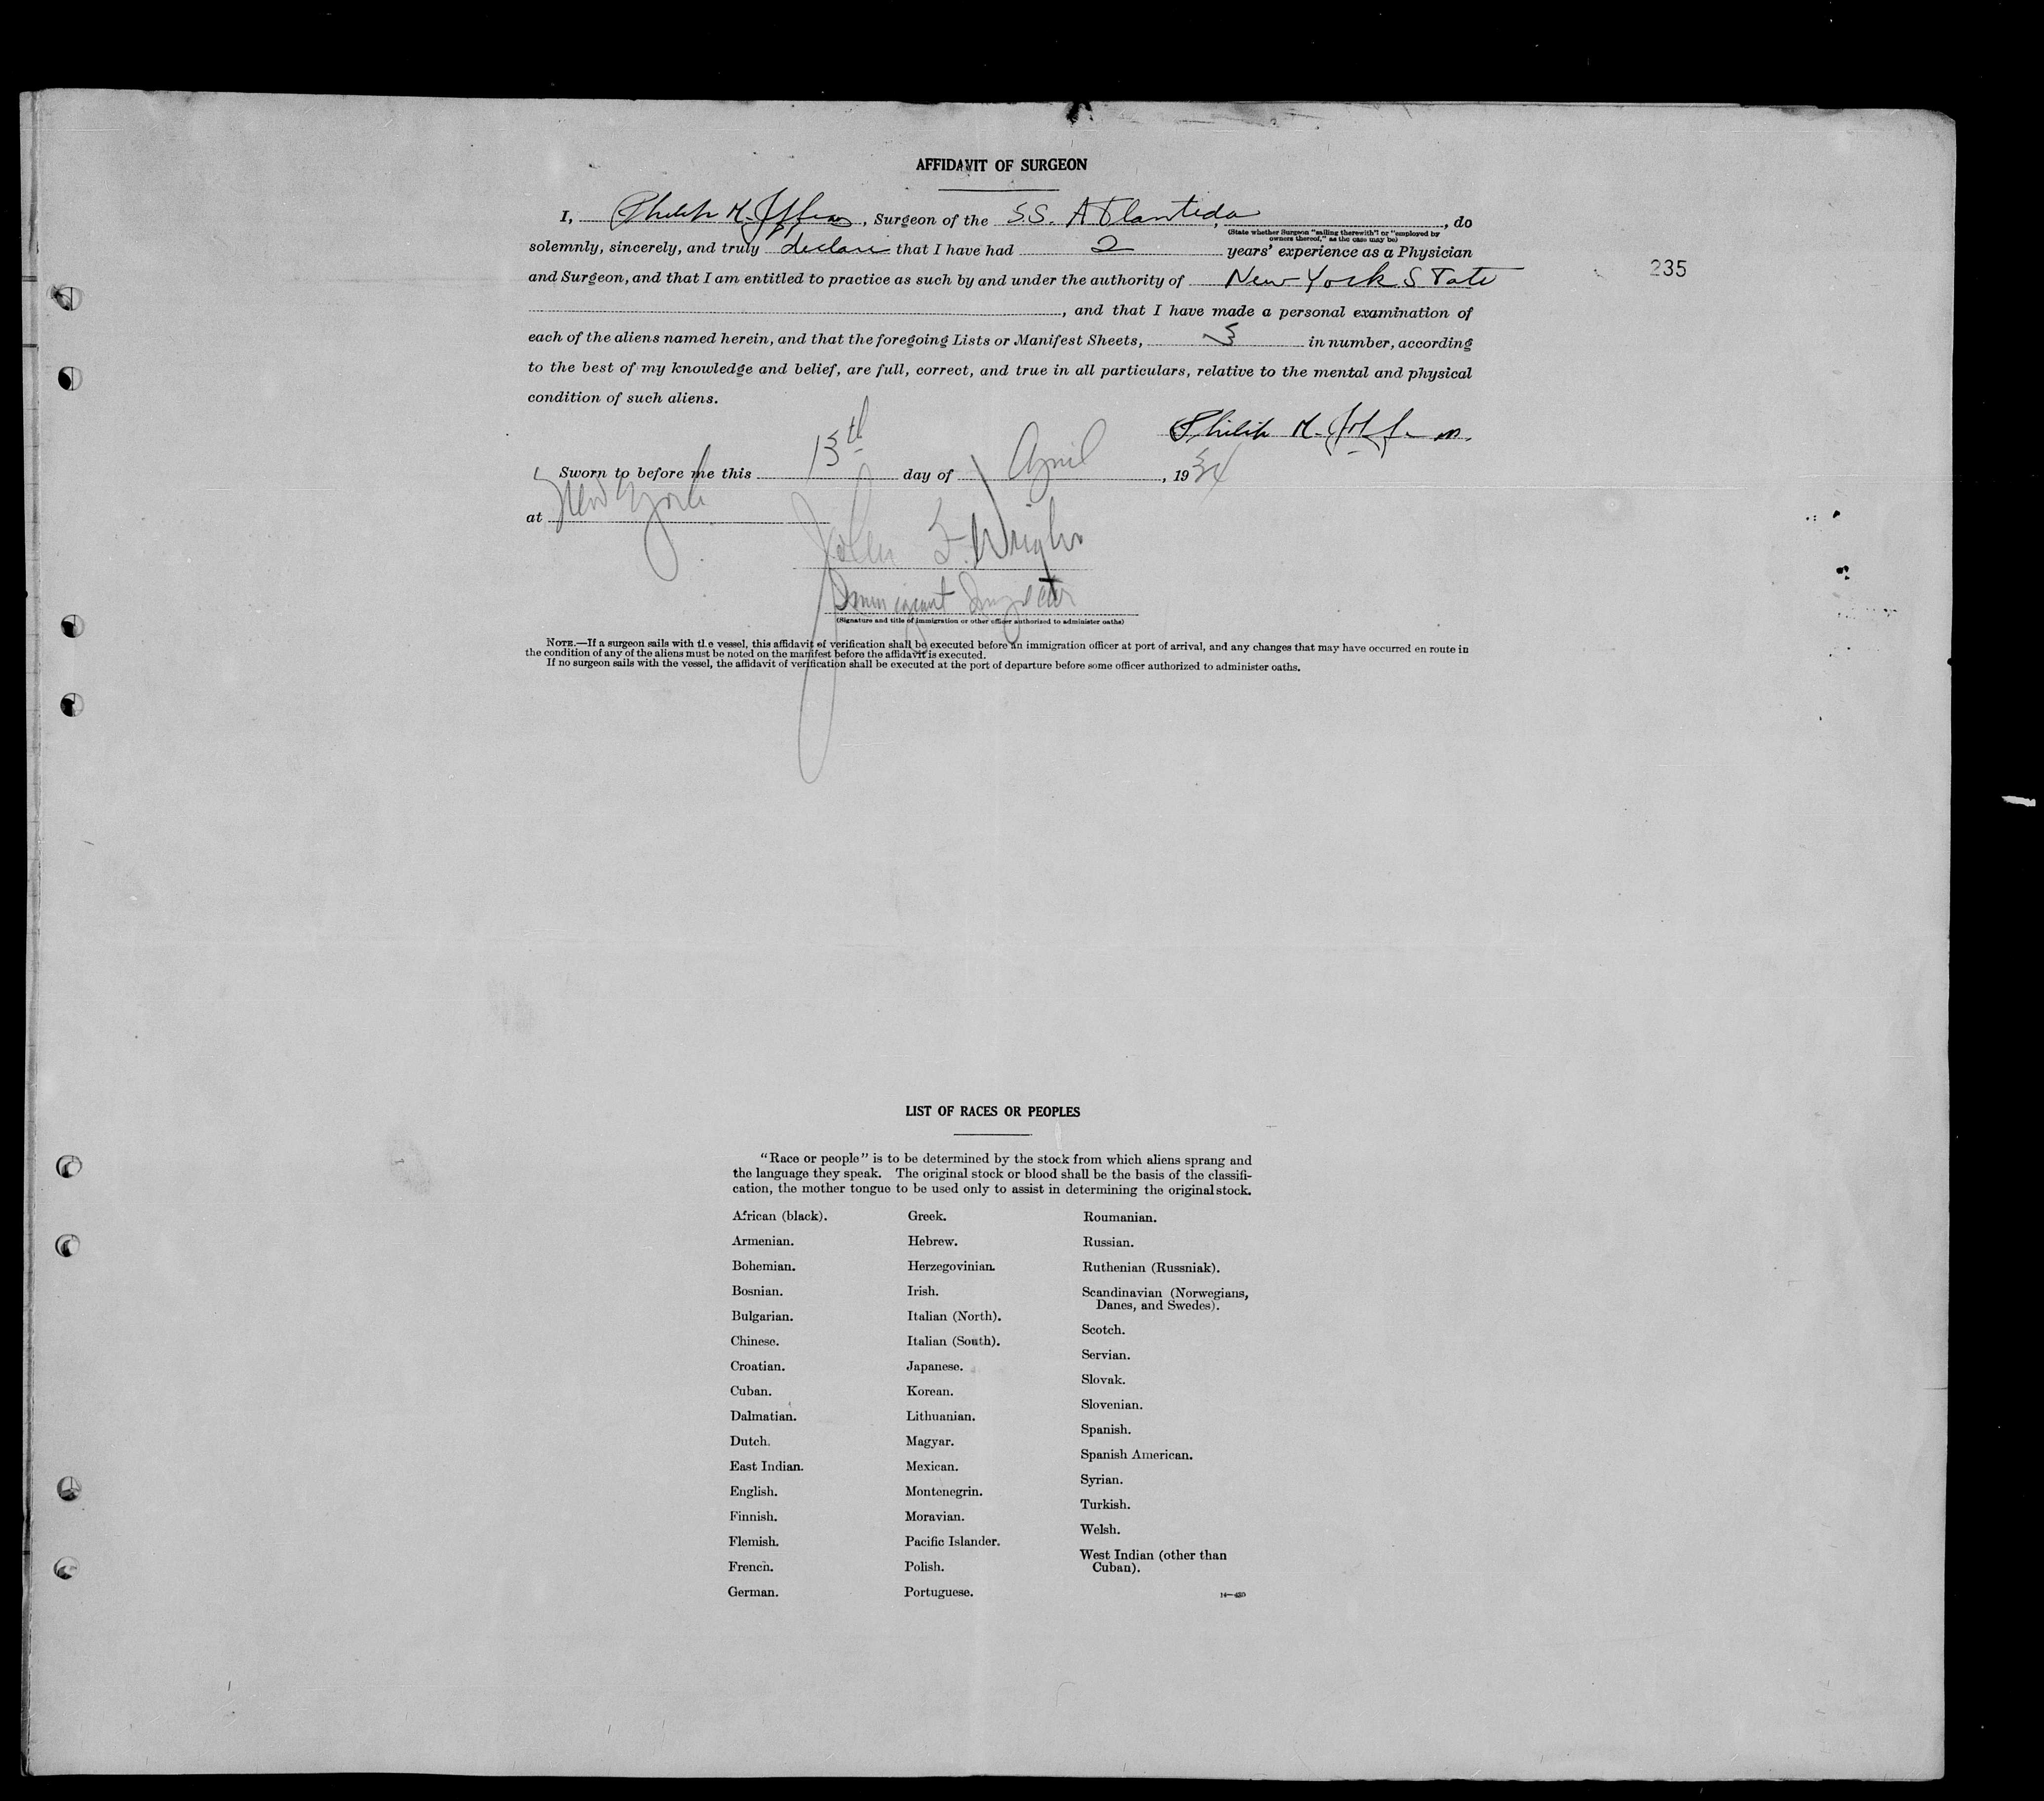 AFFIDAVIT OF SURGEON
I, Philip K. , Surgeon of the S.S. Atlantida, , do
(State whether Surgeon "sailing therewith" or "employed by
owners thereof," as the case may be)
solemnly, sincerely, and truly declare that I have had 2 years' experience as a Physician
235
and Surgeon, and that I am entitled to practice as such by and under the authority of New York State
, and that I have made a personal examination of
each of the aliens named herein, and that the foregoing Lists or Manifest Sheets, 3 in number, according
to the best of my knowledge and belief, are full, correct, and true in all particulars, relative to the mental and physical
condition of such aliens.
Philip K.
Sworn to before me this 13th day of April, 1934
at New York
John F. Wright
Immigrant Inspector
(Signature and title of immigration or other officer authorized to administer oaths)
NOTE.—If a surgeon sails with the vessel, this affidavit of verification shall be executed before an immigration officer at port of arrival, and any changes that may have occurred en route in
the condition of any of the aliens must be noted on the manifest before the affidavit is executed.
If no surgeon sails with the vessel, the affidavit of verification shall be executed at the port of departure before some officer authorized to administer oaths.
LIST OF RACES OR PEOPLES
"Race or people" is to be determined by the stock from which aliens sprang and
the language they speak. The original stock or blood shall be the basis of the classifi-
cation, the mother tongue to be used only to assist in determining the original stock.
African (black).
Armenian.
Bohemian.
Bosnian.
Bulgarian.
Chinese.
Croatian.
Cuban.
Dalmatian.
Dutch.
East Indian.
English.
Finnish.
Flemish.
French.
German.
Greek.
Hebrew.
Herzegovinian.
Irish.
Italian (North).
Italian (South).
Japanese.
Korean.
Lithuanian.
Magyar.
Mexican.
Montenegrin.
Moravian.
Pacific Islander.
Polish.
Portuguese.
Roumanian.
Russian.
Ruthenian (Russniak).
Scandinavian (Norwegians,
Danes, and Swedes).
Scotch.
Servian.
Slovak.
Slovenian.
Spanish.
Spanish American.
Syrian.
Turkish.
Welsh.
West Indian (other than
Cuban).
14—430